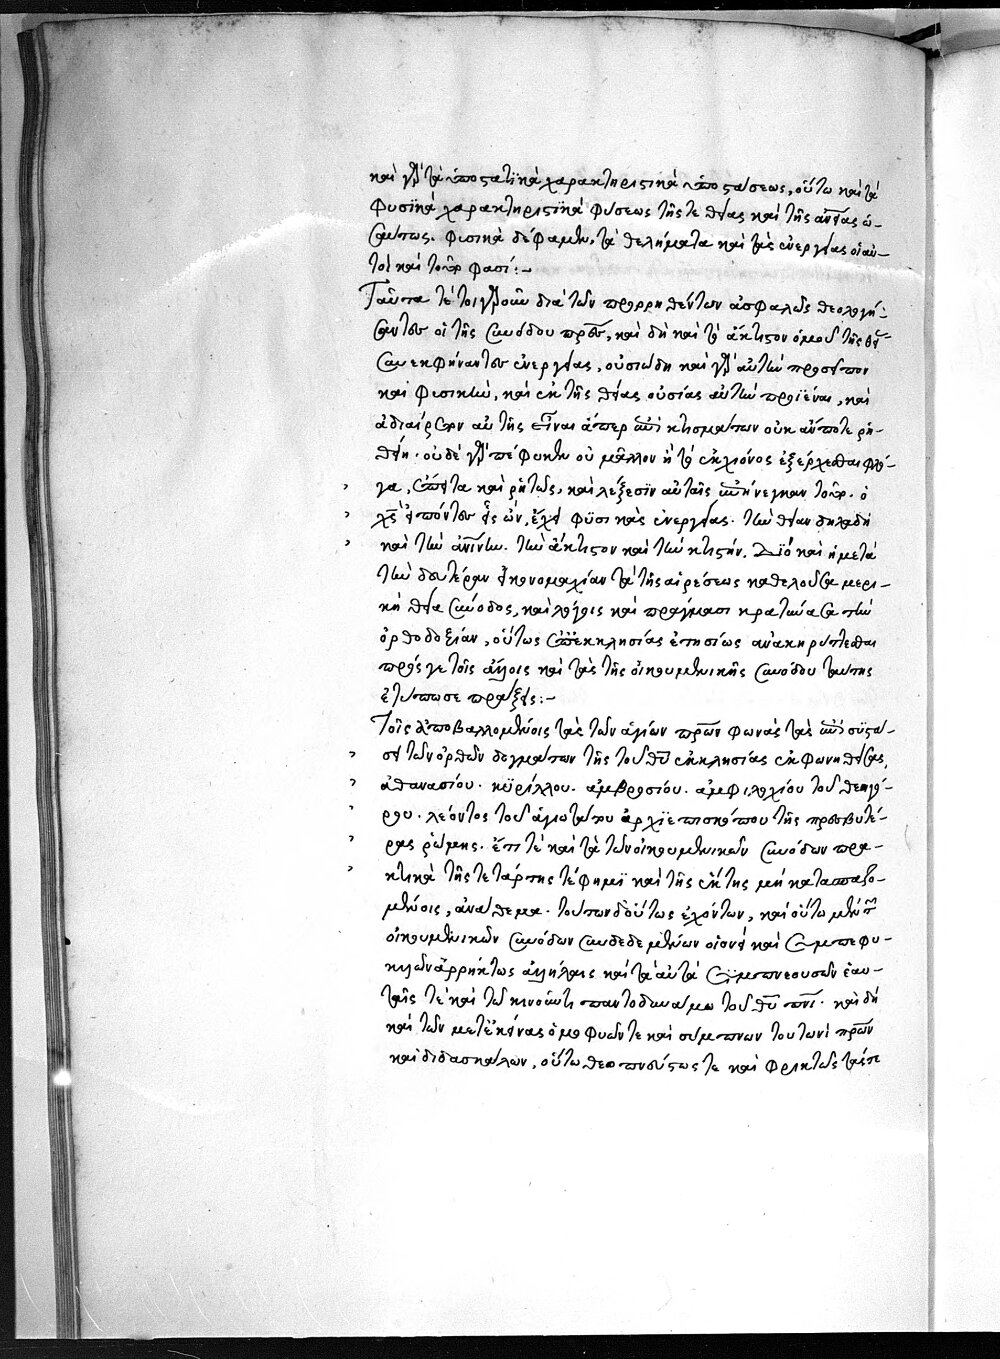 καὶ γὰρ τὰ ὑποστατικὰ χαρακτηριστικὰ ὑποστάσεως, οὕτω καὶ τὰ
φυσικὰ χαρακτηριστικὰ φύσεως τῆς τε θείας καὶ τῆς ἀνίνας ὡ-
σαύτως. φυσικὰ δέ φαμεν, τὰ θελήματα καὶ τὰς ἐνεργείας οἱ αὐ-
τοὶ καὶ φασί:-
Ταῦτα τέ τοιγαροῦν διὰ τῶν προρρηθέντων ἀσφαλῶς θεολογή-
σαντες οἱ τῆς συνόδου πρες, καὶ δὴ καὶ τὸ ἄκτιστον ὁμοῦ τῆς
συνεκφήναντες ἐνεργείας, οὐσιώδη καὶ γὰρ αὐτὴν προσεῖπον
καὶ φυσικὴν, καὶ ἐκ τῆς θείας οὐσίας αὐτὴν προϊέναι, καὶ
ἀδιαίρετον αὐτῆς εἶναι ἅπερ ἐπὶ κτισμάτων οὐκ ἄν ποτε ῥη-
θείη. οὐδὲ γὰρ πέφυκεν οὐ μᾶλλον ἢ τὸ ἐκ χιόνος ἐξέρχεσθαι φλό-
γα, ἔπειτα καὶ ῥητῶς, καὶ λέξεσιν αὐταῖς ἐπήνεγκαν ὁ
χς εἰπόντες ἧς ὧν, ἔχει φυσικὰς ἐνεργείας. τὴν θείαν δηλαδὴ
καὶ τὴν ἀνίνην. τὴν ἄκτιστον καὶ τὴν κτιστήν. Διὸ καὶ ἡ μετὰ
τὴν δευτέραν εἰκονομαχίαν τὰ τῆς αἱρέσεως καθελοῦσα μερι-
κὴ θεία σύνοδος, καὶ λόγοις καὶ πράγμασι κρατύνασα τὴν
ὀρθοδοξίαν, οὕτως ἐπ' ἐκκλησίας ἐτησίως ἀνακηρύττεσθαι
πρός γε τοῖς ἄλλοις καὶ τὰς τῆς οἰκουμενικῆς συνόδου ταύτης
ἐτύπωσε πράξεις:-
Τοῖς ἀποβαλλομένοις τὰς τῶν ἁγίων πρων φωνὰς τὰς ἐπὶ συστά-
σει τῶν ὀρθῶν δογμάτων τῆς τοῦ θυ ἐκκλησίας ἐκφωνηθείσας,
ἀθανασίου. κυρίλλου. ἀμβροσίου. ἀμφιλοχίου τοῦ θεηγό-
ρου. λέοντος τοῦ ἁγιωτάτου ἀρχιεπισκόπου τῆς πρεσβυτέ-
ρας ῥώμης. ἔτι τὲ καὶ τὰ τῶν οἰκουμενικῶν συνόδων πρα-
κτικὰ τῆς τετάρτης τέ φημι καὶ τῆς ἕκτης μὴ κατασπαζο-
μένοις, ἀνάθεμα. τούτων δ' οὕτως ἐχόντων, καὶ οὕτω μὲν
οἰκουμενικῶν συνόδων συνδεδεμένων οἱονεὶ καὶ συμπεφυ-
κυιῶν ἀρρήκτως ἀλλήλαις καὶ τὰ αὐτὰ συμπνεουσῶν ἑαυ-
ταῖς τὲ καὶ τῶ κινοῦντι παντοδυνάμω τοῦ θυ πνι. καὶ δὴ
καὶ τῶν μετ' ἐκείνας ὁμοφυῶν τε καὶ σύμπνων τουτωνὶ πρων
καὶ διδασκάλων, οὕτω θεοπνεύστως τε καὶ φρικτῶς